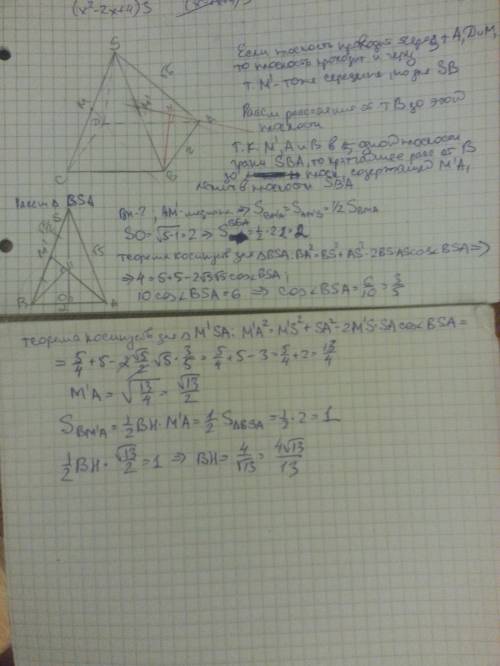 (x²-2x+4)3
Если плоскость проходит через т A, D и M,
то плоскость проходит и через
т. M' - тоже середина, но для SB
Рассм расстояние от т B до этой
плоскости
Т.к. M', A и B в одной плоскости
грани SBA, то кратчайшее расс от B
до плоск, содержащей M'A,
лежит в плоскости SBA
S
√5
M
M'
D
H
A
2
C
B
Рассм Δ BSA
S
√5
M'
H
B
O
A
2
BH-?, AM-медиана ⇒ S = S = 1/2 S
SO = √5-1 = 2 ⇒ S BSA = 1/2 · 2·2 = 2
теорема косинусов для ΔBSA: BA² = BS² + AS² - 2BS·AS cos∠BSA ⇒
⇒ 4 = 5 + 5 - 2√5√5 cos∠BSA;
10 cos∠BSA = 6 ⇒ cos∠BSA = 6/10 = 3/5
теорема косинусов для Δ M'SA: M'A² = M'S² + SA² - 2M'S·SA cos∠BSA =
= 5/4 + 5 - 2 √5/2 · √5 · 3/5 = 5/4 + 5 - 3 = 5/4 + 2 = 13/4
M'A = √13/4 = √13/2
S BM'A = 1/2 BH · M'A = 1/2 S ΔBSA = 1/2 · 2 = 1
1/2 BH · √13/2 = 1 ⇒ BH = 4/√13 = 4√13/13